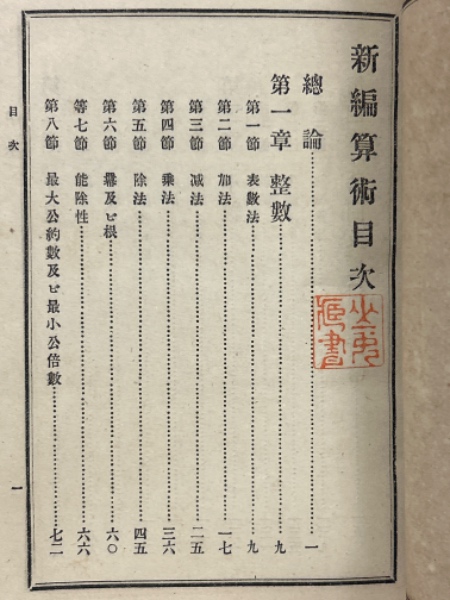 新編算術目次
總論……一
第一章 整數……九
第一節 表數法……九
第二節 加法……一七
第三節 減法……二五
第四節 乘法……三六
第五節 除法……四五
第六節 羃及ビ根……六〇
等七節 能除性……六六
第八節 最大公約數及ビ最小公倍數……七二
目次
一